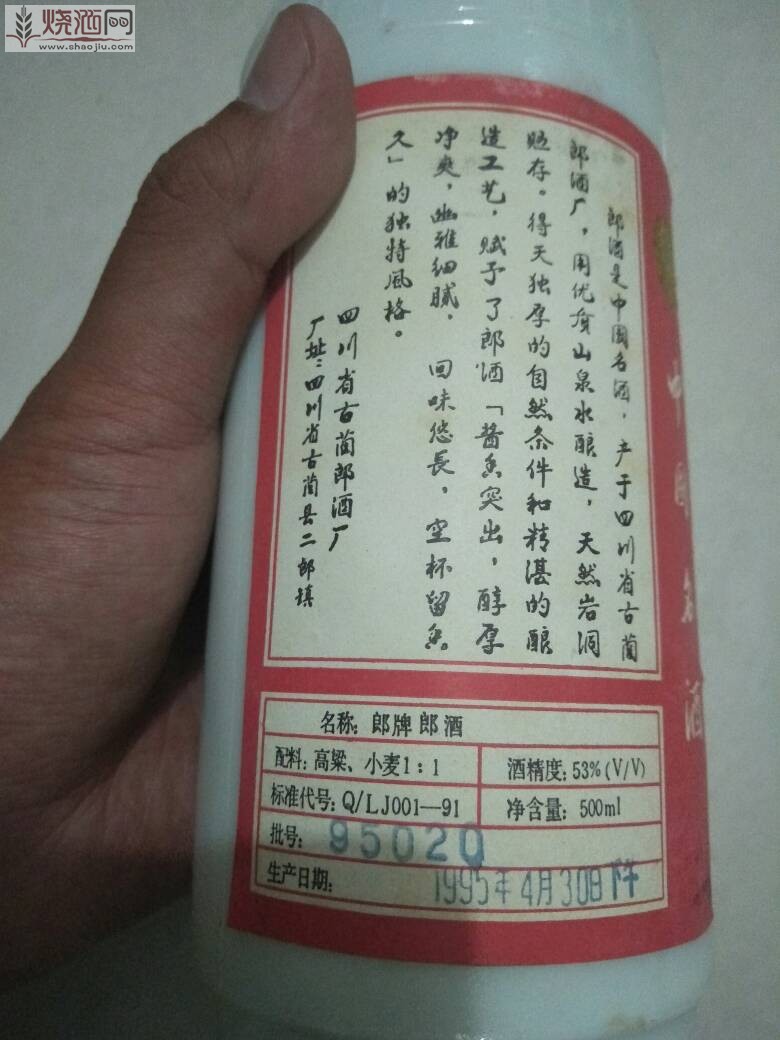 烧酒网
www.shaojiu.com
郎酒是中国名酒，产于四川省古蔺
郎酒厂，用优质山泉水酿造，天然岩洞
贮存。得天独厚的自然条件和精湛的酿
造工艺，赋予了郎酒「酱香突出，醇厚
净爽，幽雅细腻，回味悠長，空杯留香
久」的独特风格。
四川省古蔺郎酒厂
厂址：四川省古蔺县二郎镇
中国名酒
名称：郎牌郎酒
配料：高粱、小麦1：1
酒精度：53%(V/V)
标准代号：Q/LJ001—91
净含量：500ml
批号：95020
生产日期：1995年4月30日下午